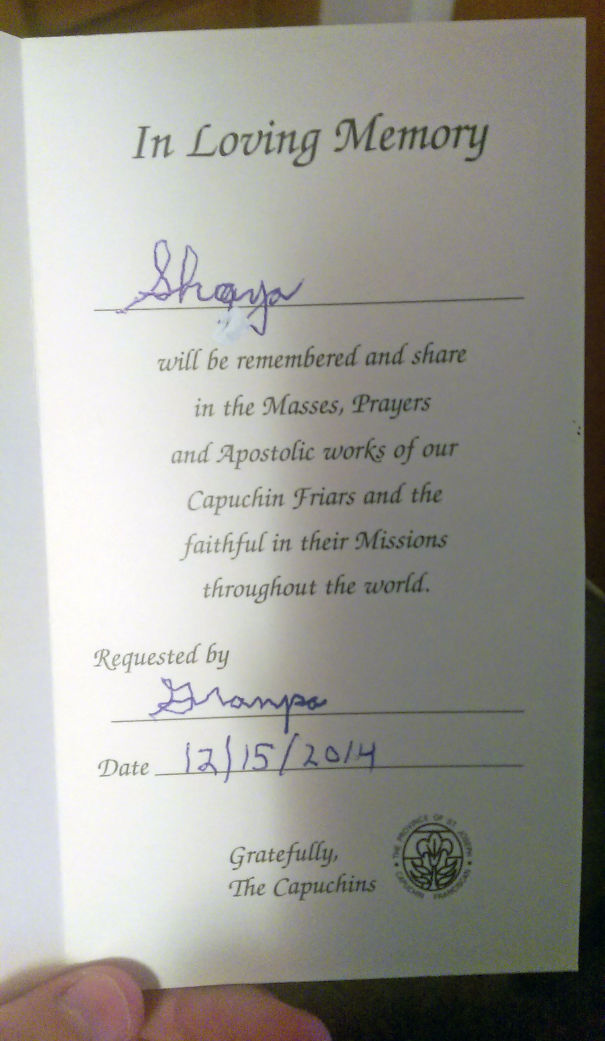 In Loving Memory
Shaya
will be remembered and share
in the Masses, Prayers
and Apostolic works of our
Capuchin Friars and the
faithful in their Missions
throughout the world.
Requested by
Granpa
Date 12/15/2014
Gratefully,
The Capuchins
THE PROVINCE OF ST. JOSEPH
CAPUCHIN FRANCISCAN